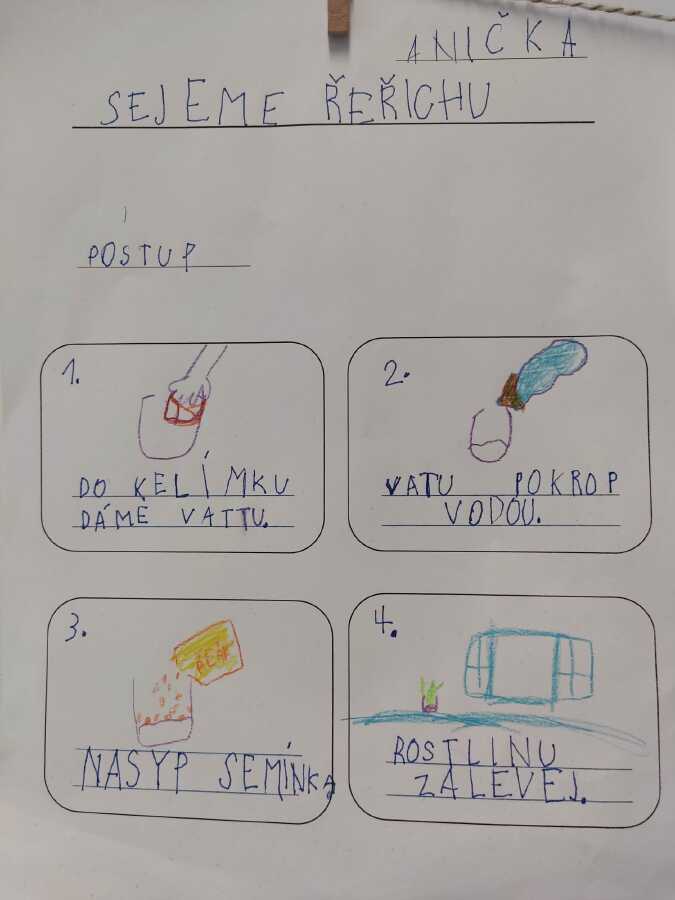 ANIČKA
SEJEME ŘEŘICHU
POSTUP
1.
DO KELÍMKU
DÁME VATTU.
2.
VATU POKROP
VODOU.
3.
ŘEŘ
NASYP SEMÍNKA
4.
ROSTLINU
ZALEVEJ.